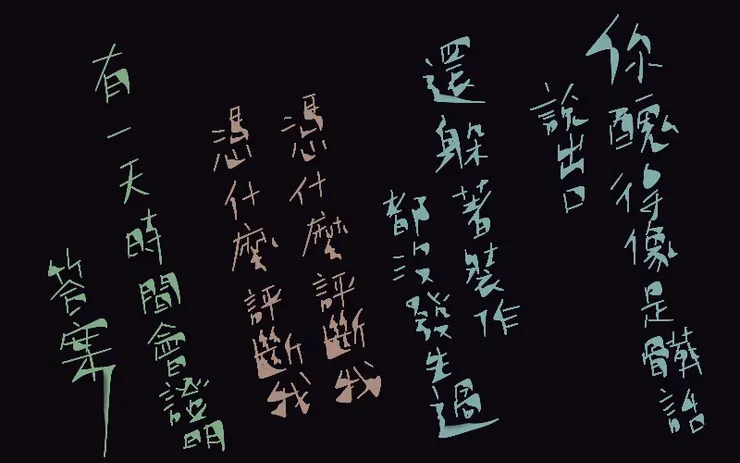 你醜得像是髒話
說出口
還躲著裝作
都沒發生過
憑什麼評斷我
憑什麼評斷我
有一天時間會證明
答案